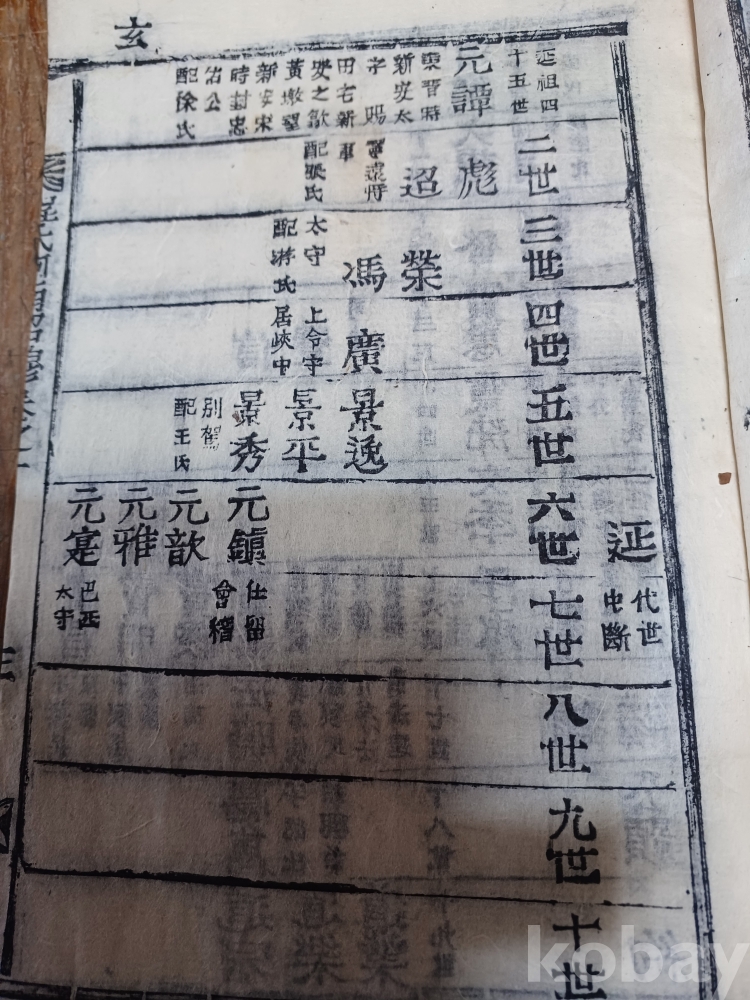 玄
延
代世
中斷
延祖四
十五世
元譚
東晋時
新安太
守賜
田宅新
安之歙
黃墩望
新安宋
時封忠
佑公
配徐氏
二世
彪
迢
寧遠將
軍
配張氏
三世
榮
馮
太守
配游氏
四世
廣
上令守
居峽中
五世
景逸
景平
景秀
別駕
配王氏
六世
元鎭
仕留
會稽
元歆
元雅
元寔
巴西
太守
七世
八世
九世
十世
kobay